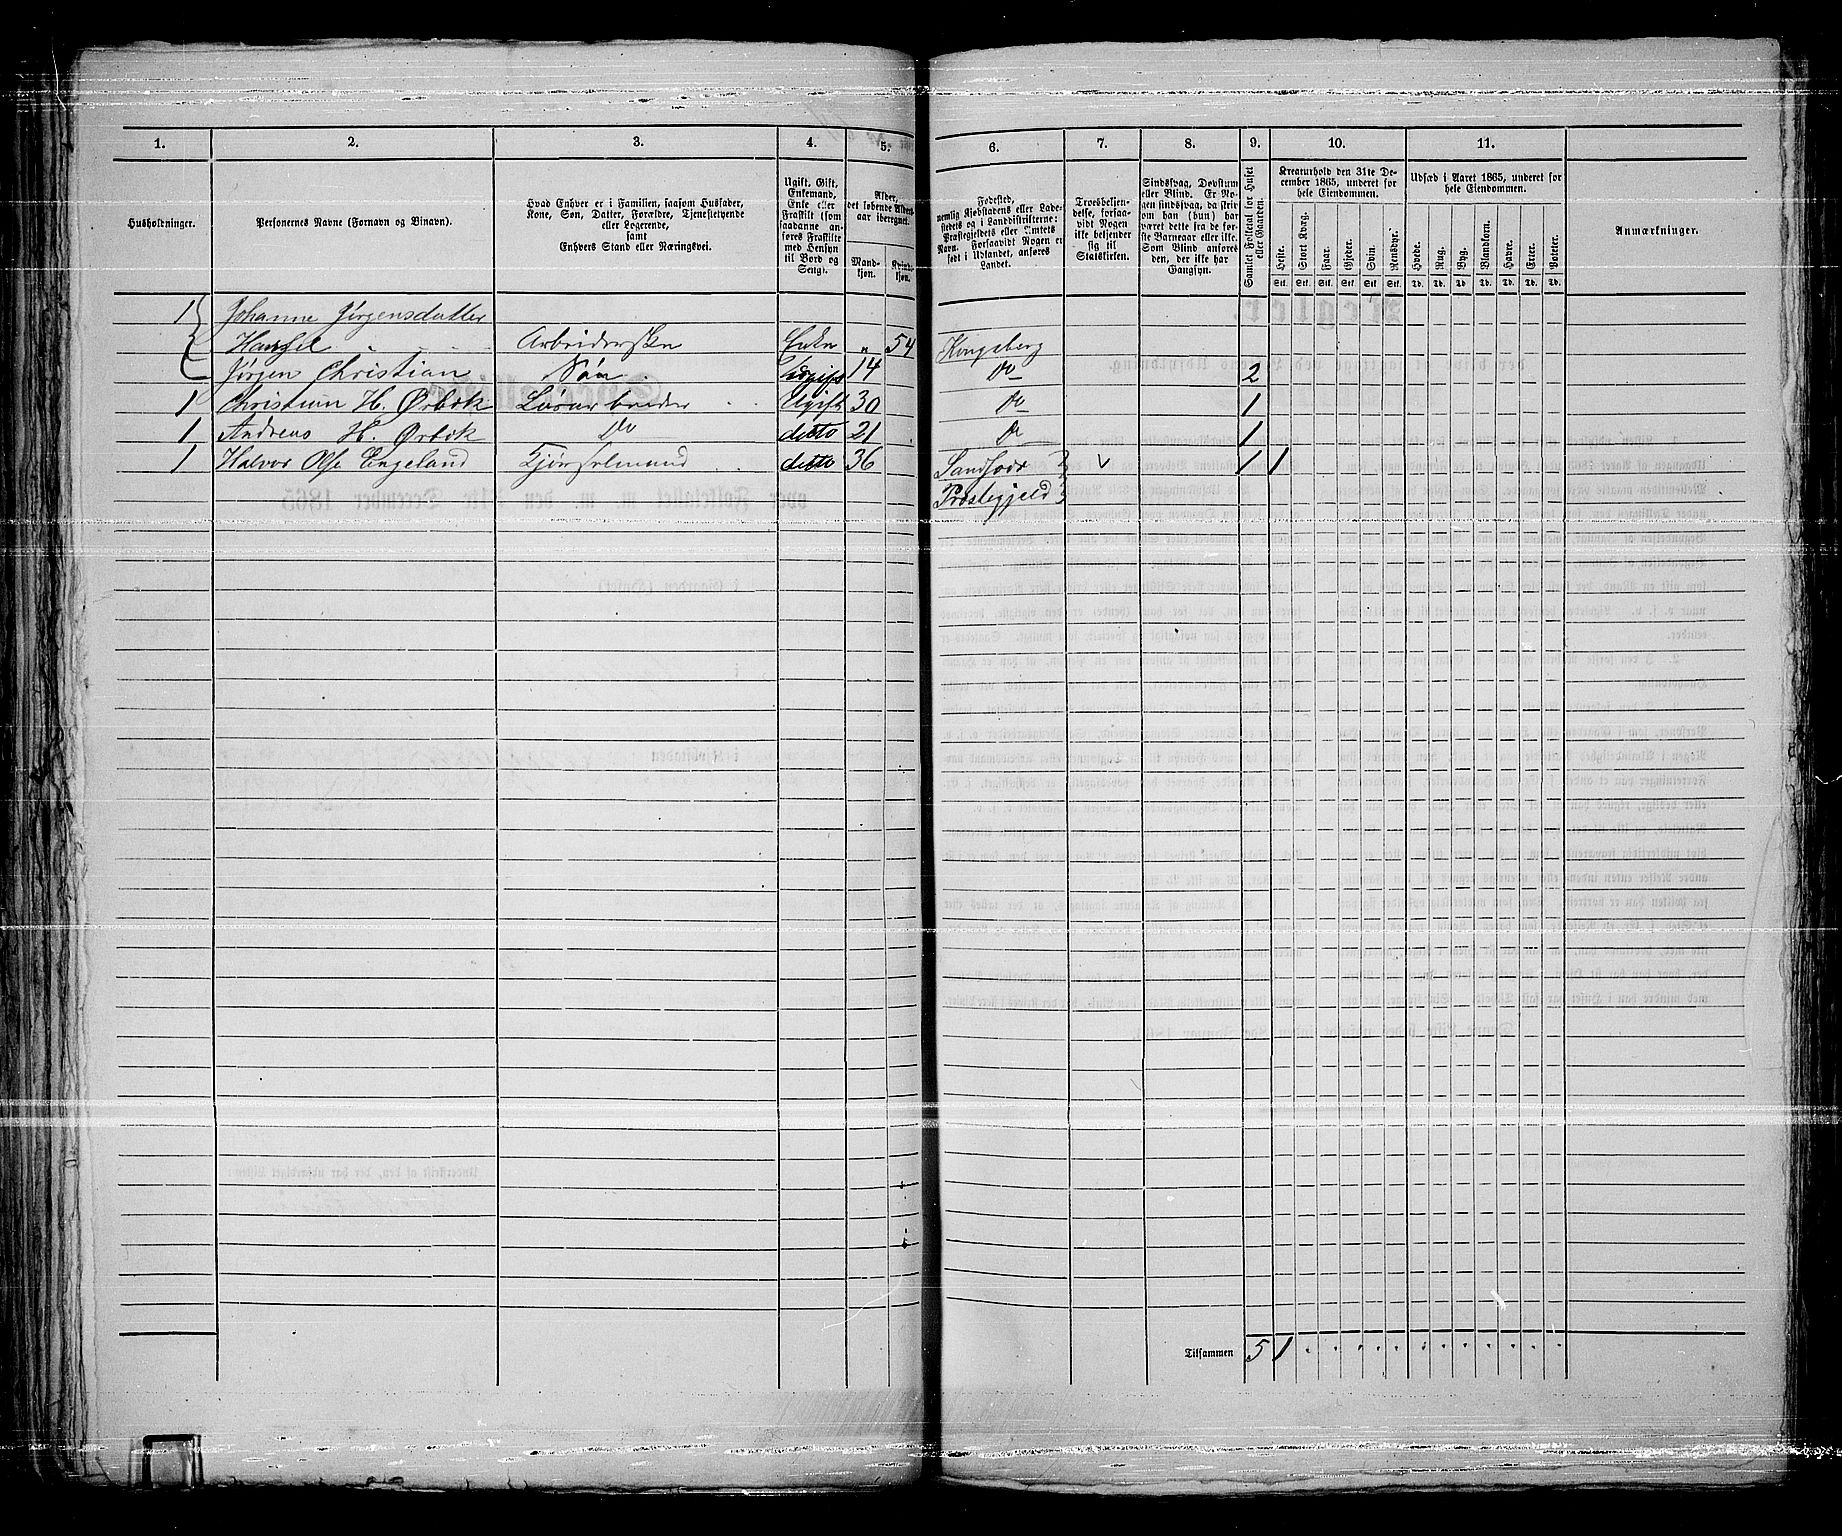 1. 2. 3. 4. 5. 6. 7. 8. 9. 10. 11.
Husholdninger.
Personernes Navne (Fornavn og Binavn).
Hvad Enhver er i Familien, saasom Husfader,
Kone, Søn, Datter, Forældre, Tjenestetyende
eller Logerende,
samt
Enhvers Stand eller Næringsvei.
Ugift, Gift,
Enkemand,
Enke eller
Fraskilt (som
saadanne an-
føres Fraskilte
med Hensyn
til Bord og
Seng).
Alder,
det løbende Alders-
aar iberegnet.
Mand-
kjøn.
Kvinde-
kjøn.
Fødested,
nemlig Kjøbstadens eller Lade-
stedets og i Landdistrikterne:
Præstegjeldets eller Amtets
Navn. Forsaavidt Nogen er
født i Udlandet, anføres
Landet.
Troesbekjen-
delse, forsaa-
vidt Nogen
ikke bekjender
sig til
Statskirken.
Sindssvag, Døvstum
eller Blind. Er No-
gen sindssvag, da skri-
ves om han (hun) har
været dette fra de før-
ste Barneaar eller ikke.
Som Blind anføres
den, der ikke har
Gangsyn.
Samlet Folketal for Huset
eller Gaarden.
Kreaturhold den 31te De-
cember 1865, underet for
hele Eiendommen.
Heste. Stort Kvæg. Faar. Gjeder. Svin. Rensdyr.
Stk. Stk. Stk. Stk. Stk. Stk.
Udsæd i Aaret 1865, underet for
hele Eiendommen.
Hvede. Rug. Byg. Blandkorn. Havre. Erter. Poteter.
Td. Td. Td. Td. Td. Td. Td.
Anmærkninger.
1 Johanne Jørgensdatter
Hansel Arbeiderske Enke " 54 Kongsberg
Jørgen Christian Søn Ugift 14 Do 2
1 Christian H. Ørbek Løsarbeider Ugift 30 Do 1
1 Andreas H. Ørbek Do ditto 21 Do 1
1 Halvor Ols. Engeland Kjørselmand ditto 36 Sandsvær 1 1
Præstegjeld
Tilsammen 5 1